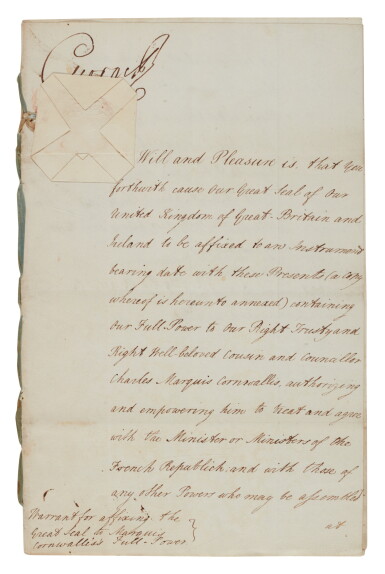 Will and Pleasure is, that You
forthwith cause Our Great Seal of Our
United Kingdom of Great-Britain and
Ireland to be affixed to an Instrument
bearing date with these Presents (a Copy
whereof is hereunto annexed) containing
Our Full-Power to Our Right Trusty and
Right Well-beloved Cousin and Councillor
Charles Marquis Cornwallis, authorizing
and empowering him to treat and agree
with the Minister or Ministers of the
French Republick, and with those of
any other Powers who may be assembled
at
Warrant for affixing the
Great Seal to Marquis
Cornwallis's Full-Power